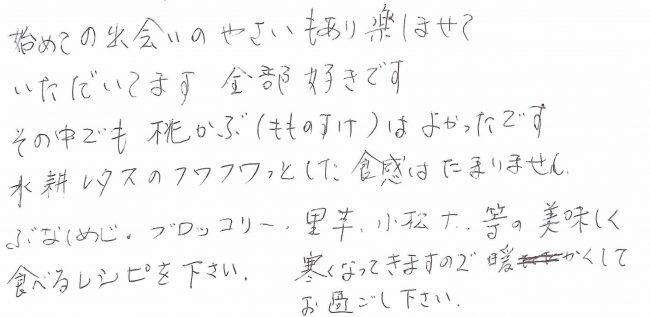 始めての出会いのやさいもあり楽しませて
いただいてます 全部好きです
その中でも 桃かぶ(もものすけ)はよかったです
水耕レタスのフワフワっとした食感はたまりません.
ぶなしめじ。ブロッコリー、里芋、小松ナ、等の美味しく
食べるレシピを下さい. 寒くなってきますので暖かくして
お過ごし下さい.